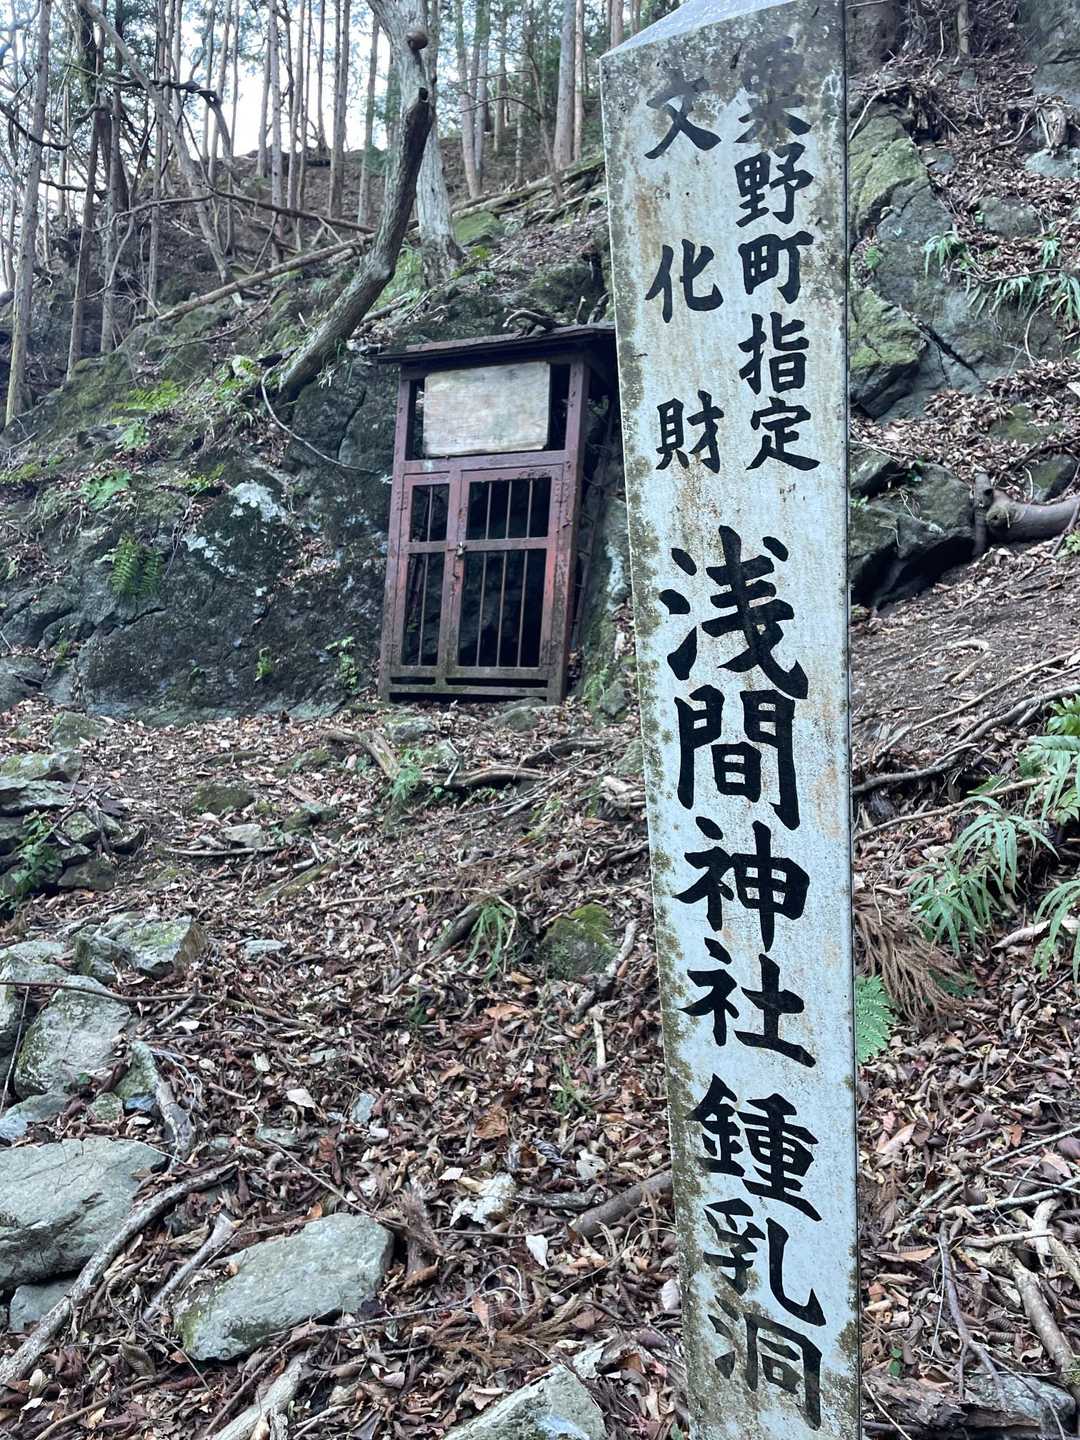 粟野町指定
文化財
浅間神社鍾乳洞